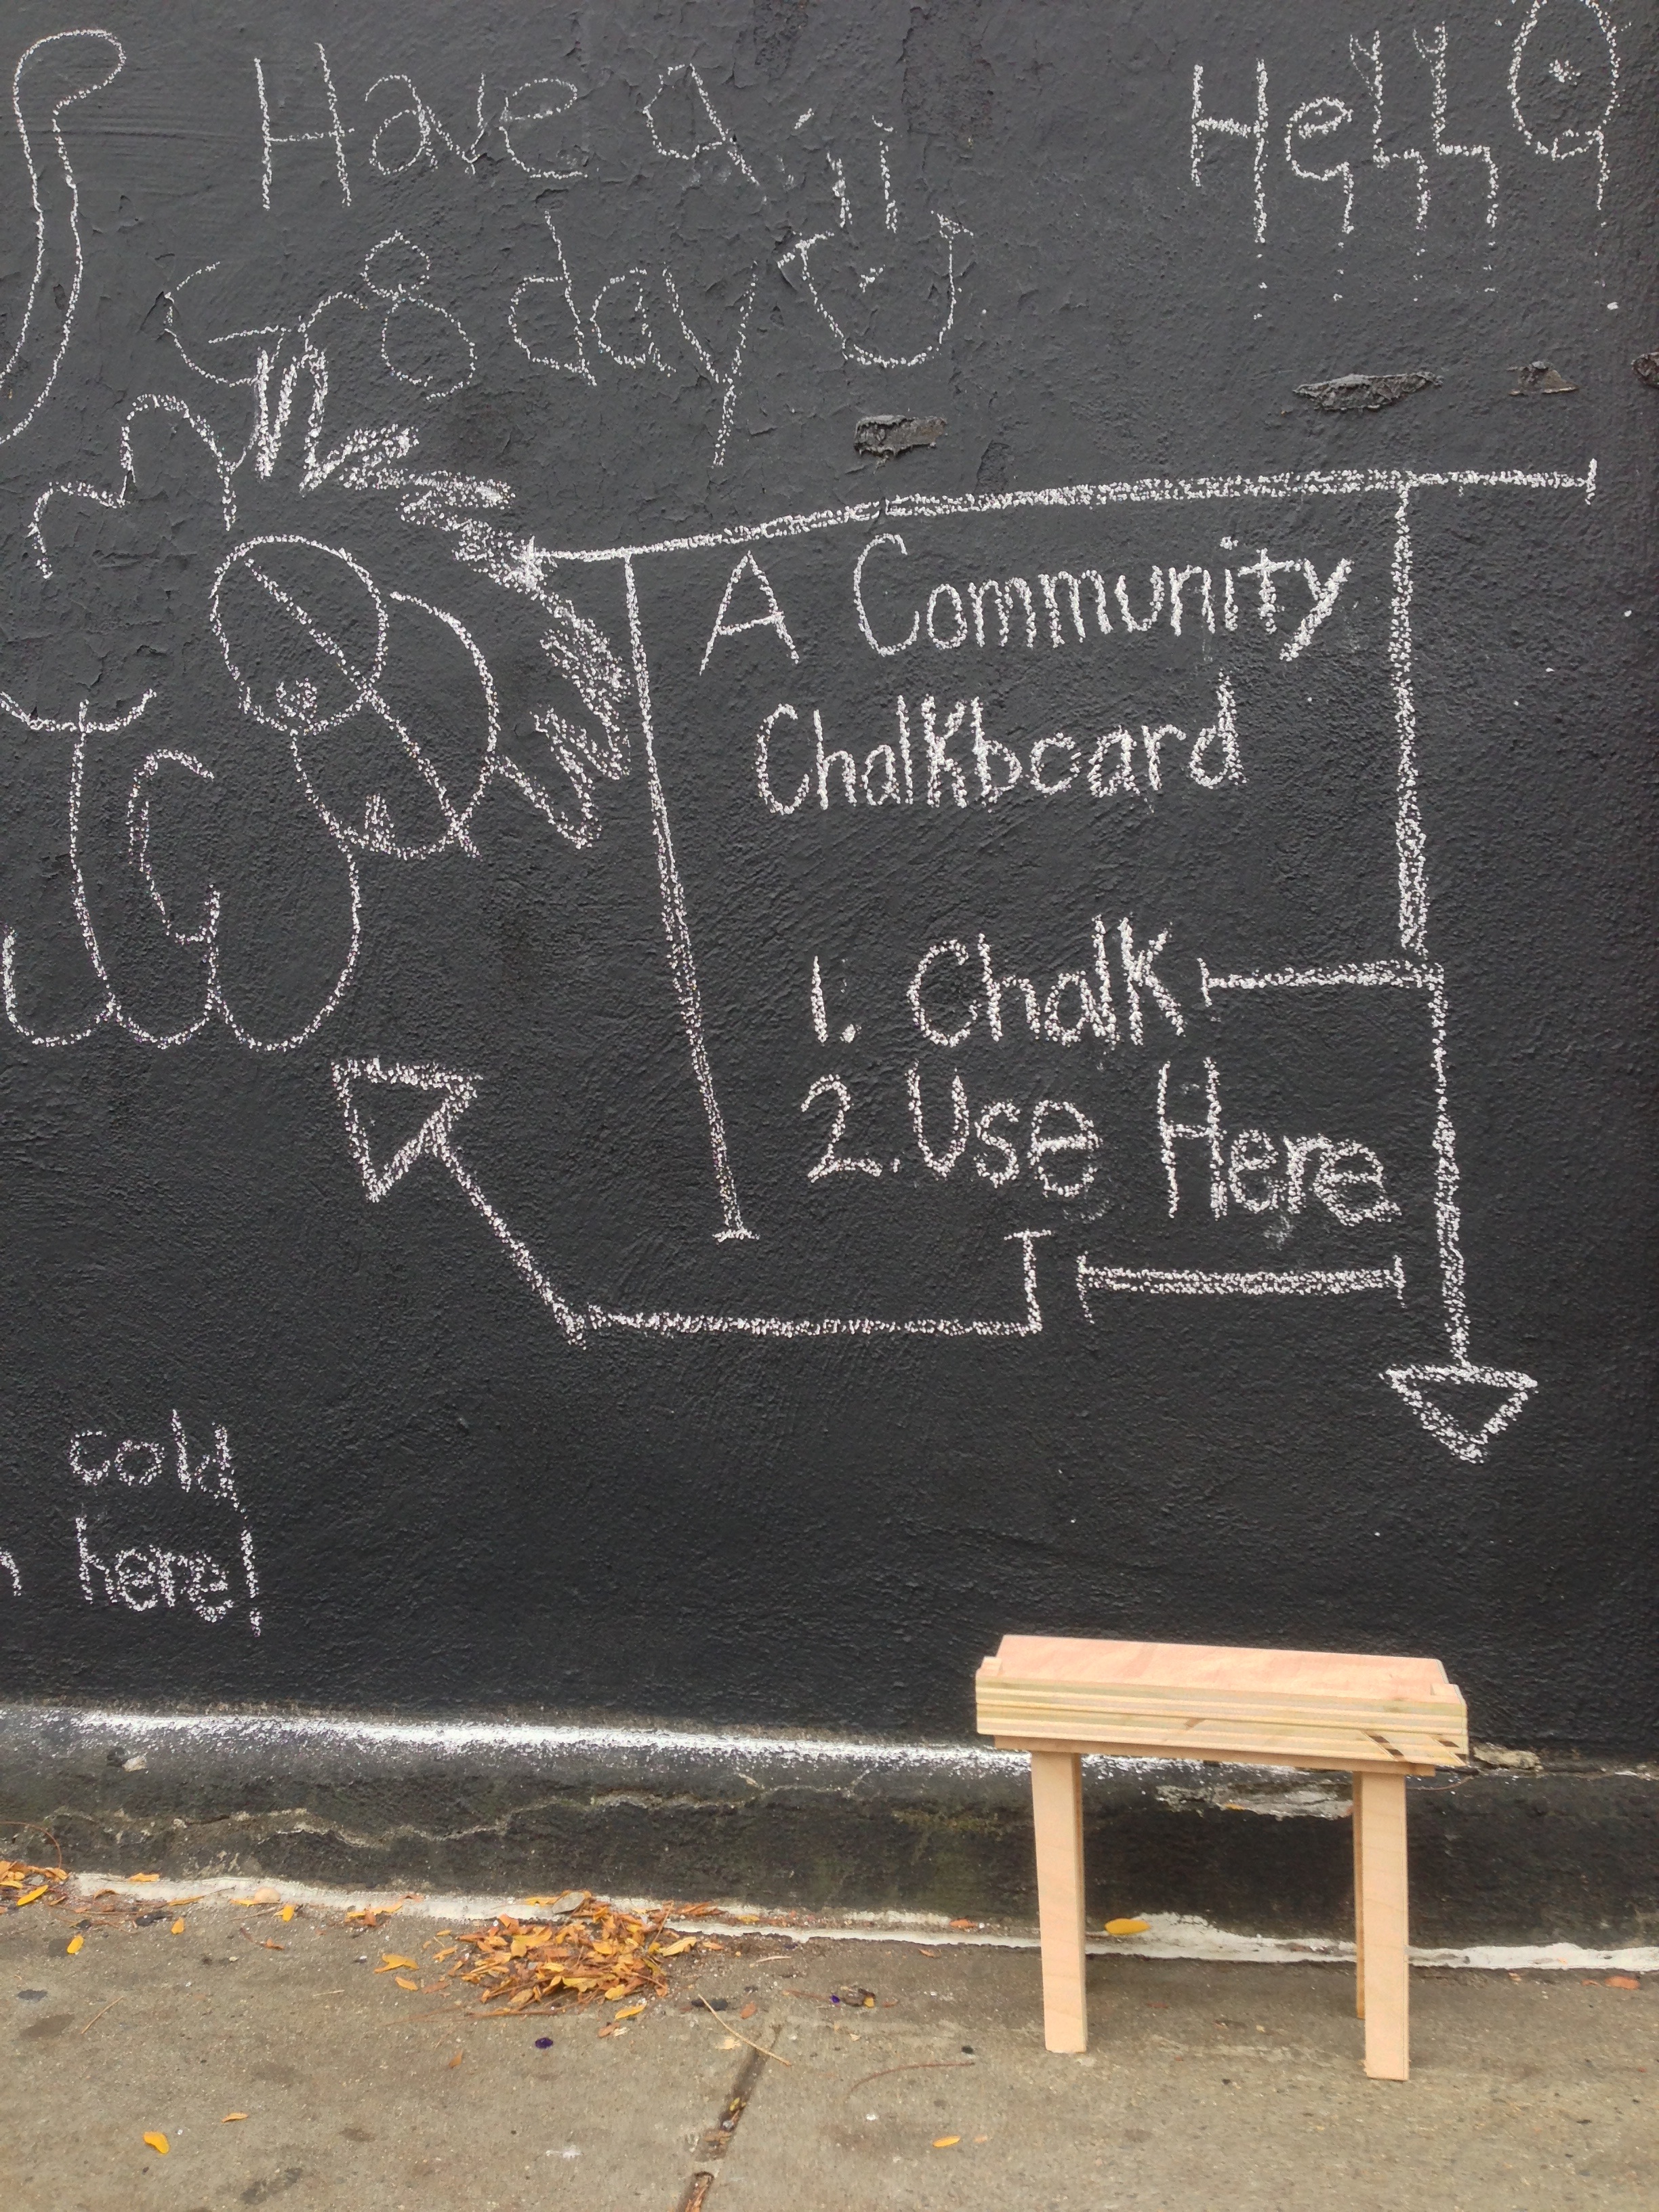 Have a
Gr8 day
Hello
A Community
Chalkboard
1. Chalk
2. Use Here
cold
here!